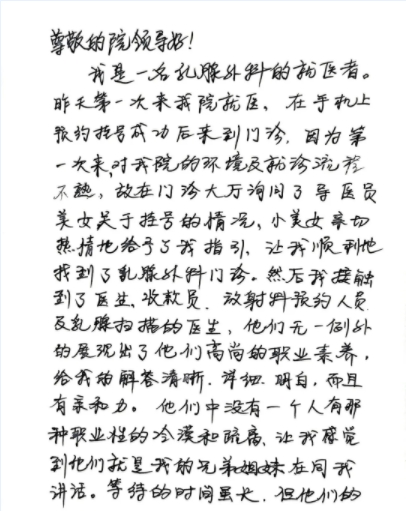 尊敬的院领导好！
我是一名乳腺外科的就医者。
昨天第一次来我院就医，在手机上
预约挂号成功后来到门诊，因为第
一次来，对我院的环境及就诊流程
不熟，故在门诊大厅询问了导医员
美女关于挂号的情况，小美女亲切
热情地给予了我指引，让我顺利地
找到了乳腺外科门诊。然后我接触
到了医生、收款员、放射科预约人员
及乳腺扫描的医生，他们无一例外
的展现出了他们高尚的职业素养，
给我的解答清晰、详细、明白，而且
有亲和力。他们中没有一个人有那
种职业性的冷漠和疏离，让我感觉
到他们就是我的兄弟姐妹在同我
讲话。等待的时间虽长，但他们的